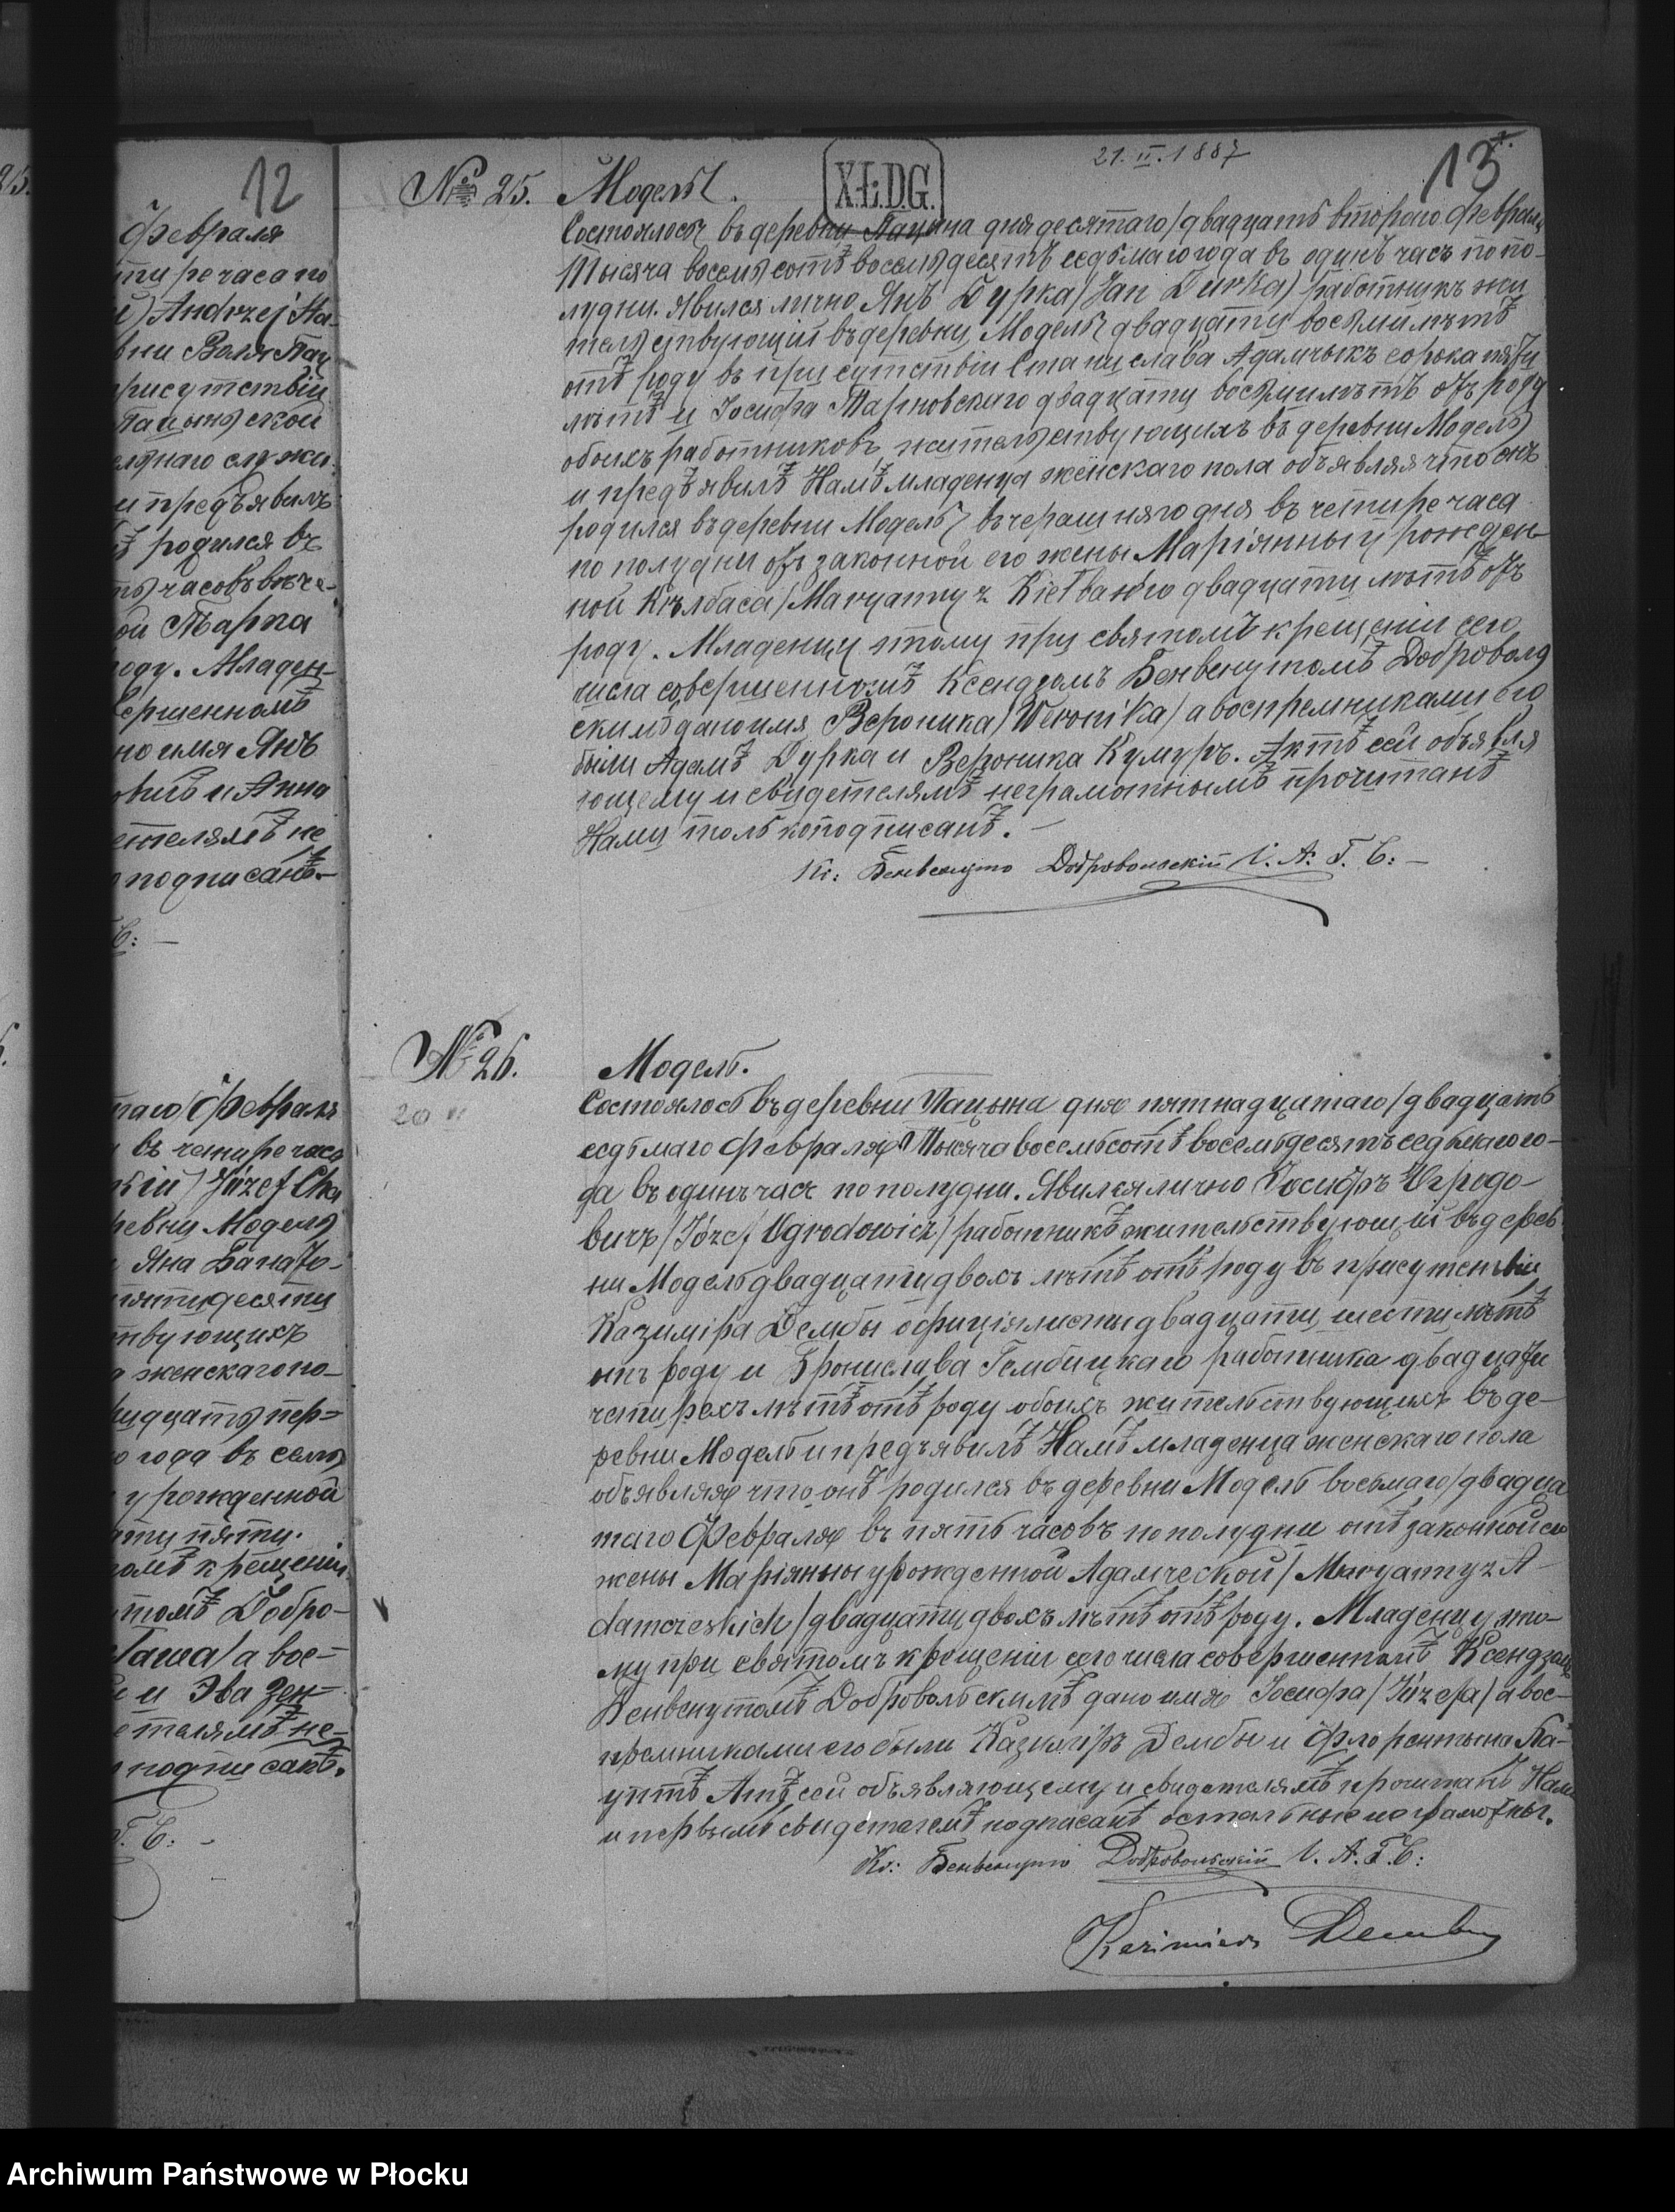 12
Февраля
тыре часа по
Andrzej Ma-
вни Воля Пац
присутствіи
и предъявилъ
родился въ
часовъ вече-
ой Марка
роду. Младен-
вершенномъ
но имя Янъ
и Анна
детелямъ не
подписанъ.—
С: —
таго/ Февраля
въ четыре часа
кій/ Józef Cha
ревни Модель
Яна Банато-
пятидесяти
ствующихъ
женскаго по-
тридцать пер=
года въ семь
урожденной
ати пяти.
томъ крещеніи
томъ Добро-
а вос-
и Эва Зен-
етелямъ не-
подписанъ.
Г. С: -
№ 25. Модель.
X.Ł.D.G.
21.II.1887
13
Состоялось въ деревни Пацына дня десятаго/двадцать второго Февраля
Тысяча восемьсотъ восемьдесятъ седьмаго года въ одинъ часъ по по-
лудни. Явился лично Янъ Дурка/Jan Durka) работникъ жи
тельствующій въ деревни Модель двадцати восьми лѣтъ
отъ роду въ присутствіи Станислава Адамчыкъ сорока пяти
лѣтъ и Іосифа Тарновскаго двадцати восьми лѣтъ отъ роду
обоихъ работниковъ жительствующихъ въ деревни Модель
и предъявилъ Намъ младенца женскаго пола объявляя что онъ
родился въ деревни Модель вчерашняго дня въ четыре часа
по полудни отъ законной его жены Маріянны урожден-
ной Кѣлбаса/Maryanny z Kiełbasów двадцати лѣтъ отъ
роду. Младенцу этому при святомъ крещеніи сего
числа совершенномъ Ксендзомъ Бенвенутомъ Доброволь
скимъ дано имя Вероника/Weronika/ а воспремниками его
были Адамъ Дурка и Вероника Кумуръ. Актъ сей объявля
ющему и свидетелямъ неграмотнымъ прочитанъ
Нами только подписанъ.—
Кс: Бенвенуто Добровольскій С. А. Г. С: —
№ 26.
20 II
Модель.
Состоялось въ деревни Пацына дня пятнадцатаго/двадцать
седьмаго Февраля Тысяча восемьсотъ восемьдесятъ седьмаго го-
да въ одинъ часъ по полудни. Явился лично Іосифъ Угродо-
вичъ/Józef Ugrodowicz/работникъ жительствующій въ дерев-
ни Модель двадцати двохъ лѣтъ отъ роду въ присутствіи
Казиміра Дембы офиціялисты двадцати шести лѣтъ
отъ роду и Бронислава Гембицкаго работника двадцати
четырехъ лѣтъ отъ роду обоихъ жительствующихъ въ де-
ревни Модель и предъявилъ Намъ младенца женскаго пола
объявляя что онъ родился въ деревни Модель восьмаго/двадца
таго Февраля въ пять часовъ по полудни отъ законной его
жены Маріянны урожденной Адамческой/Maryanny z A-
damczeskich/двадцати двохъ лѣтъ отъ роду. Младенцу это-
му при святомъ крещеніи сего числа совершенномъ Ксендзомъ
Бенвенутомъ Добровольскимъ дано имя Іосифа/Józefa/а вос-
премниками его были Казиміръ Дембы и Флорентына Ка-
уптъ Актъ сей объявляющему и свидетелямъ прочитанъ Нами
и первымъ свидетелемъ подписанъ остальные неграмотны.
Кс: Бенвенуто Добровольскій С. А. Г. С:
Kazimierz Demby
Archiwum Państwowe w Płocku